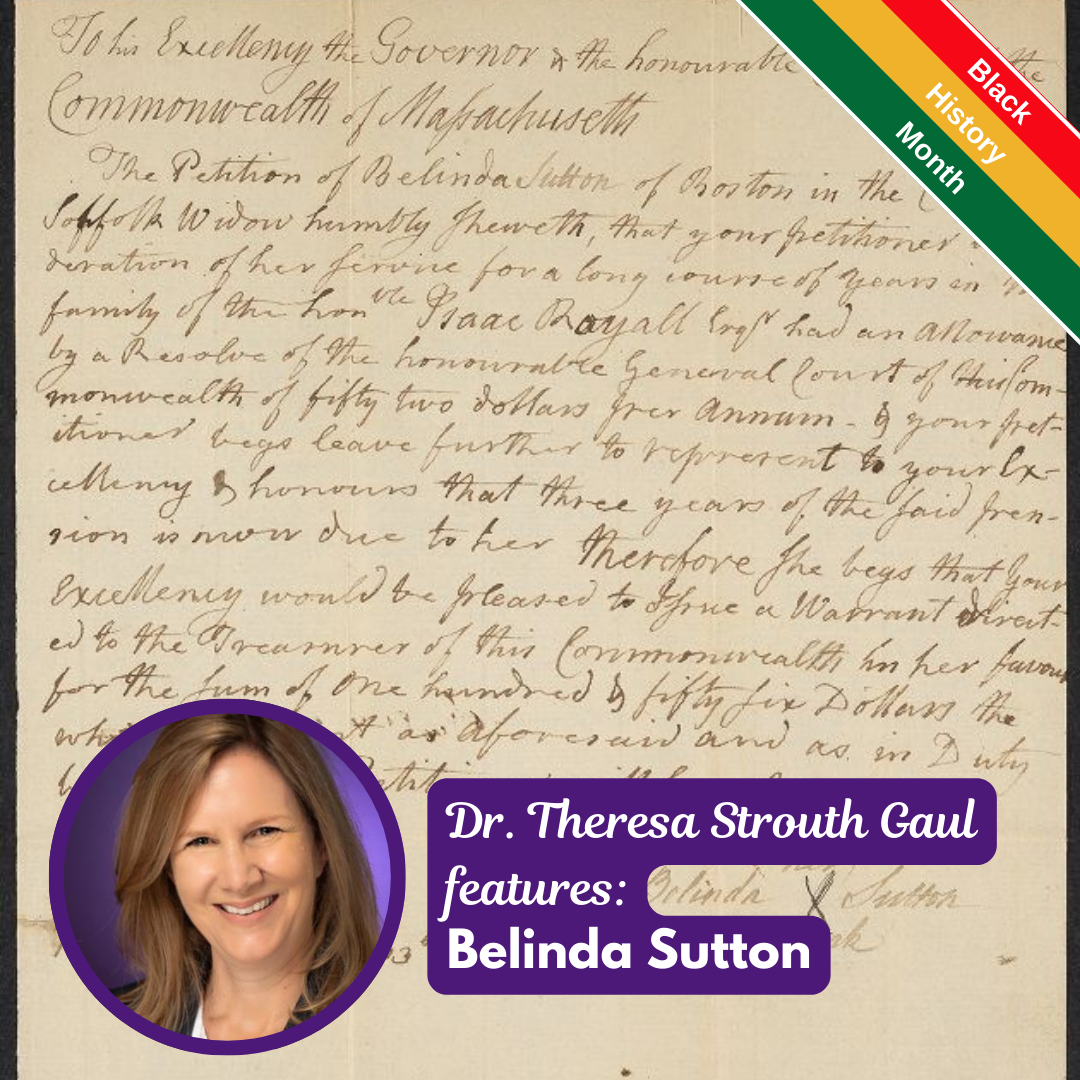 To his Excellency the Governor & the honourable the
Commonwealth of Massachusetts
The Petition of Belinda Sutton of Boston in the
Suffolk Widow humbly sheweth, that your petitioner
deration of her service for a long course of years in
family of the honble Isaac Royall Esqr had an allowance
by a Resolve of the honourable General Court of this Com-
monwealth of fifty two dollars per Annum - & your pet-
itioner begs leave further to represent to your Ex-
cellency & honours that three years of the said pen-
sion is now due to her therefore she begs that your
Excellency would be pleased to Issue a Warrant direct-
ed to the Treasurer of this Commonwealth in her favour
for the sum of One hundred & fifty six Dollars the
as aforesaid and as in Duty
Belinda X Sutton
Black
History
Month
Dr. Theresa Strouth Gaul
features:
Belinda Sutton